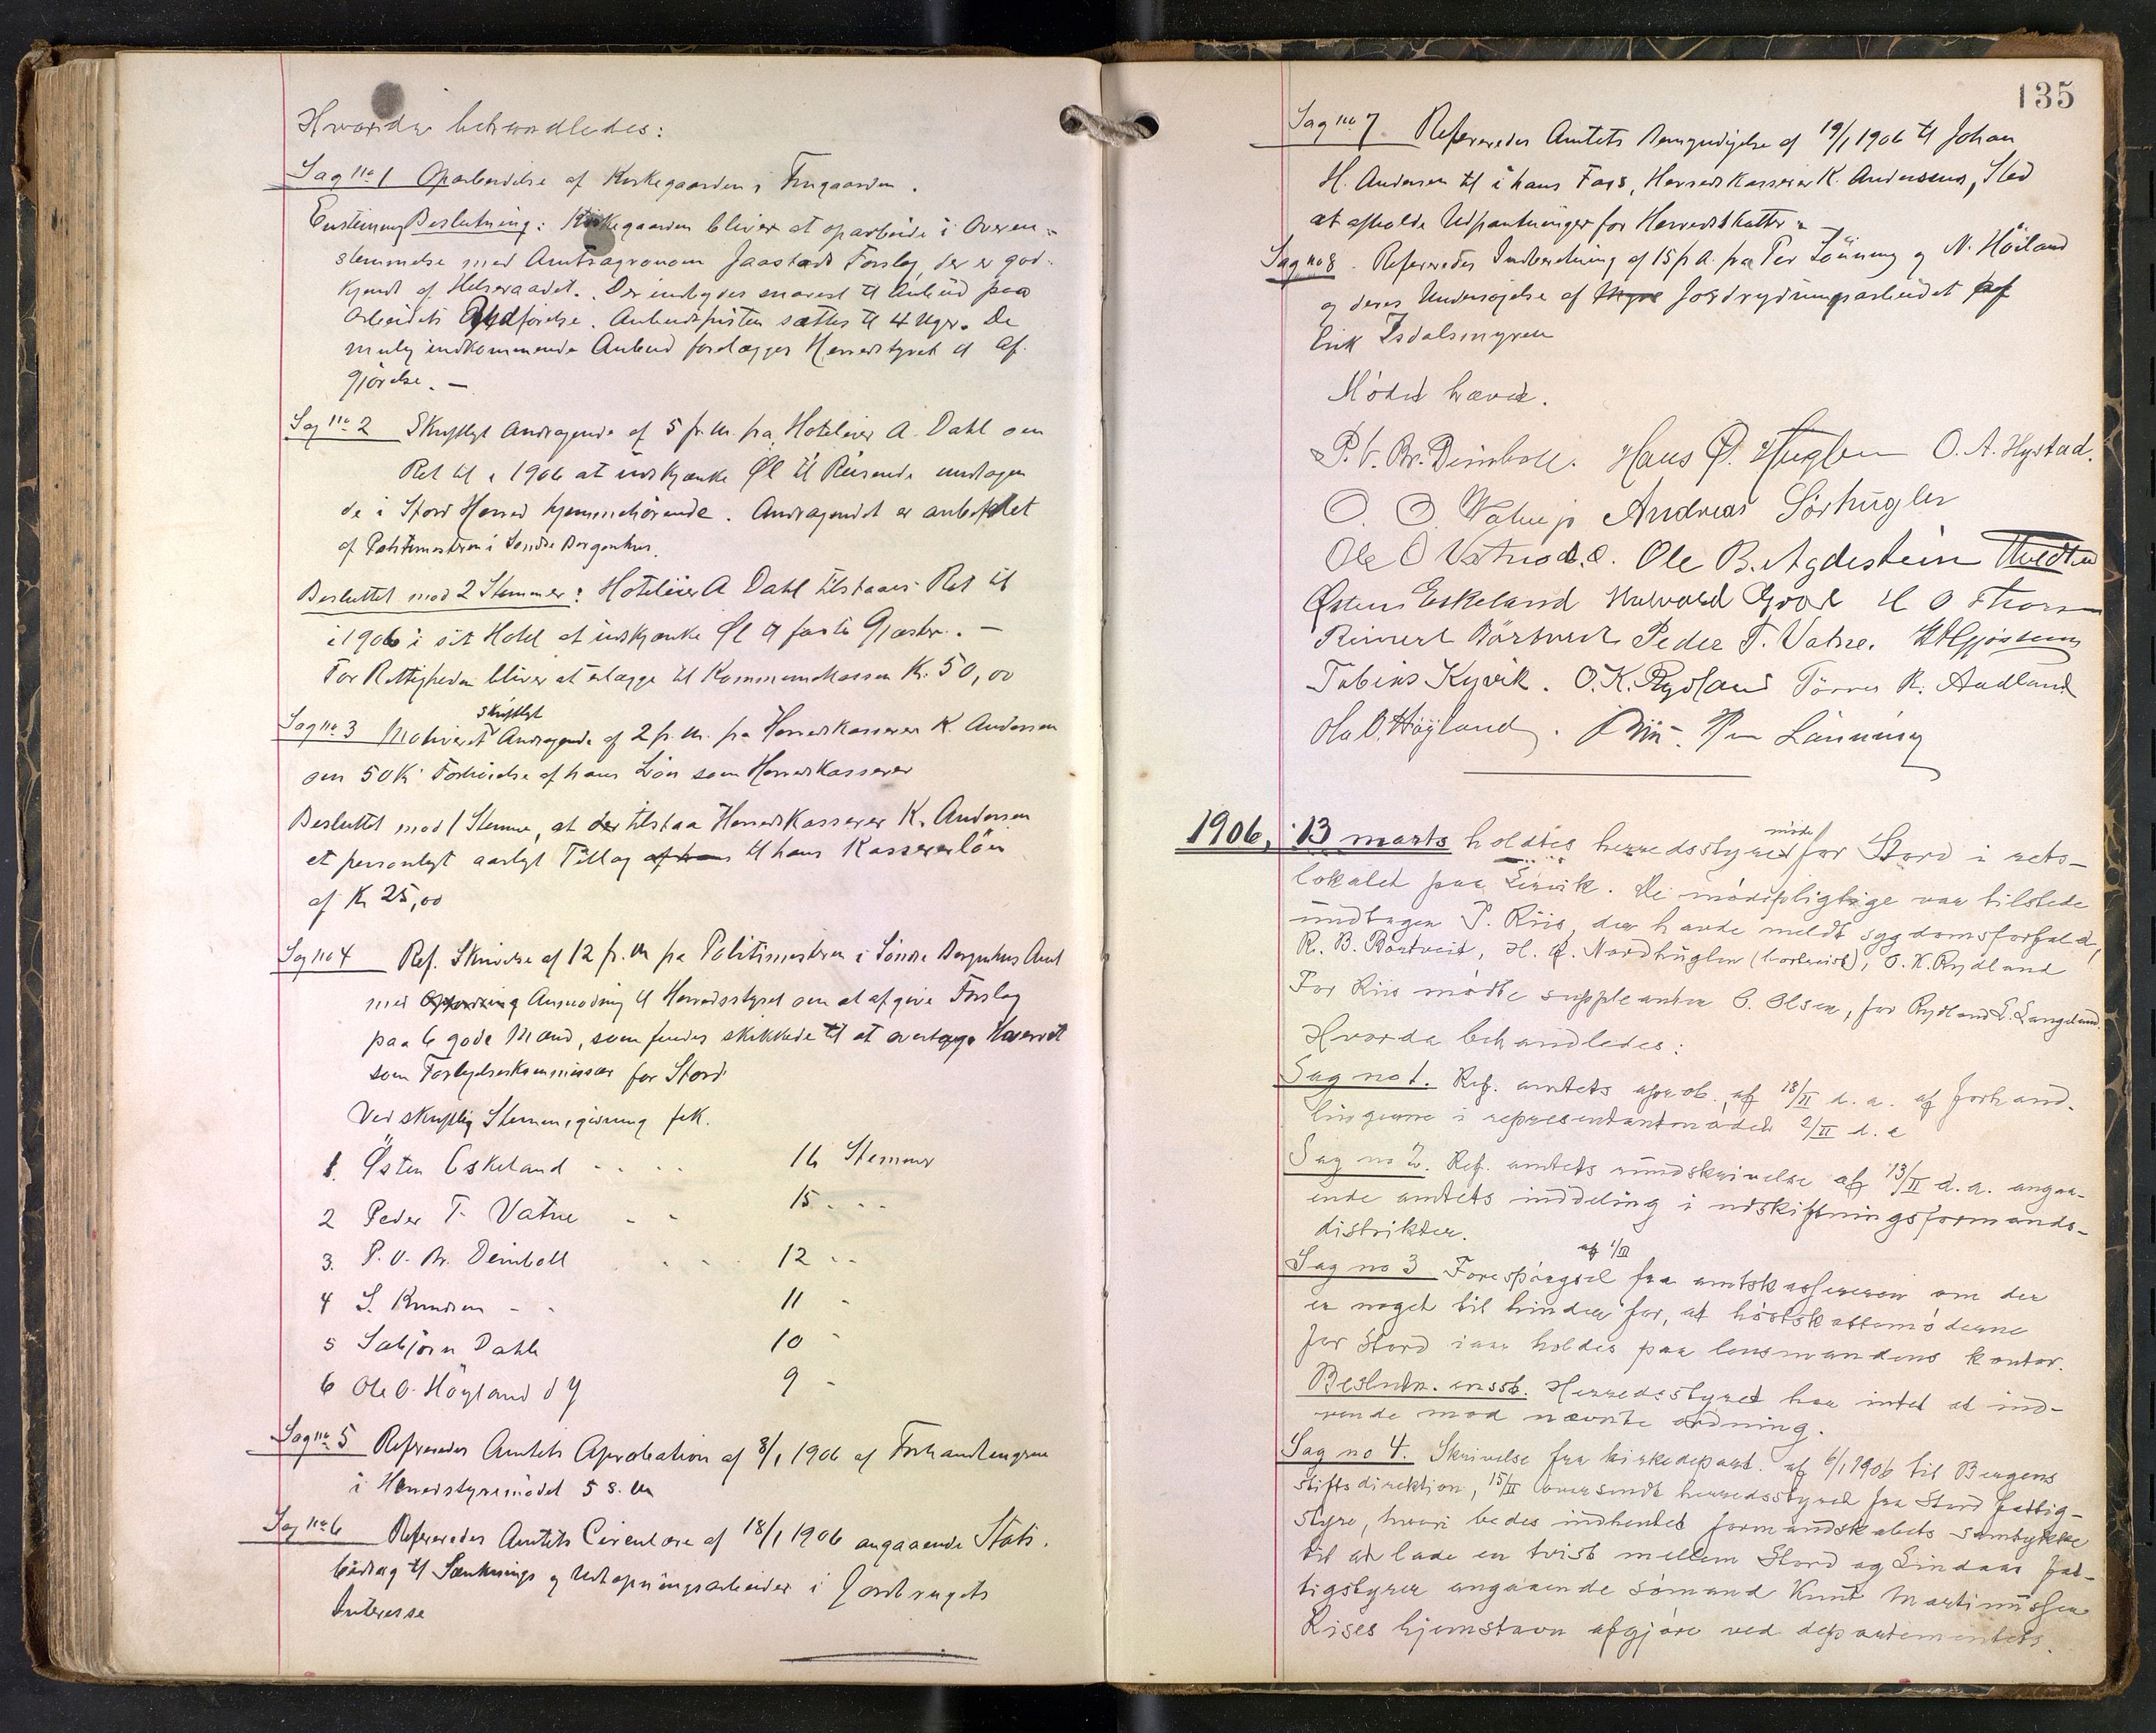 Hvorda behandledes:
Sag no 1 Oparbeidelse af Kirkegaarden i Frugaarden.
Enstemmig Beslutning: Kirkegaarden bliver at oparbeide i Overen-
stemmelse med Amtsagronom Jaastads Forslag, der er god-
kjendt af Helseraadet. Der indbydes snarest til Anbud paa
Arbeidets Udførelse. Anbudsfristen sættes til 4 Uger. De
mulig indkommende Anbud forelægges Herredstyret til Af-
gjørelse. —
Sag no 2 Skriftligt Andragende af 5 f. M. fra Hoteleier A. Dahl om
Ret til i 1906 at udskjænke Øl til Reisende undtagen
de i Stord Herred hjemmehørende. Andragendet er anbefalet
af Politimesteren i Søndre Bergenhus.
Besluttet mod 2 Stemmer: Hoteleier A Dahl tilstaaes Ret til
i 1906 i sit Hotel at udskjænke Øl til faste Gjæster. —
For Rettigheden bliver at erlægge til Kommunekassen Kr. 50,00
Sag no 3 Motiveret skriftligt Andragende af 2 f. M. fra Herredskasserer K. Andersen
om 50 Kr Forhøielse af hans Løn som Herredskasserer
Besluttet mod 1 Stemme, at der tilstaa Herredskasserer K. Andersen
et personligt aarligt Tillæg af hans til hans Kassererløn
af Kr 25,00
Sag no 4 Ref. Skrivelse af 12 f. M fra Politimesteren i Søndre Bergenhus Amt
med Opfordring Anmodning til Herredsstyret om at afgive Forslag
paa 6 gode Mænd, som findes skikkede til at overtage Hvervet
som Forligelseskommissær for Stord
Ved skriftlig Stemmegivning fik.
1. Østen Eskeland - - - - 16 Stemmer
2 Peder T. Vatne - - 15 - - -
3. P. V. Br. Deinboll - - 12 - -
4 S. Knudsen - - 11 -
5 Sæbjørn Dahle 10 -
6 Ole O. Høyland d Y 9 -
Sag no 5 Refereredes Amtets Aprobation af 8/1 1906 af Forhandlingerne
i Herredstyremødet 5 s. M
Sag no 6 Refereredes Amtets Circulære af 18/1 1906 angaaende Stats-
bidrag til Sænknings og Udtapningsarbeider i Jordbrugets
Interesse
135
Sag no 7 Refereredes Amtets Bemyndigelse af 19/1 1906 til Johan
H. Andersen til i hans Fars, Herredskasserer K. Andersens, Sted
at afholde Udpantninger for Herredsskatter
Sag no 8. Refereredes Indberetning af 15 f. A. fra Per Lönning og N. Höiland
og deres Undersøgelse af Myre Jordrydningsarbeidet af
Erik Isdalsmyren
Mødet hævet.
P. V. Br. Deinboll. Hans Ø. Huglen O. A. Hystad.
O. O. Vatne jr Andreas Sörhuglen
Ole O Vatne d.e. Ole B. Agdestein Tvedten
Østen Eskeland Halvard Hovl H O Thorsen
Reinert Børtveit Peder T. Vatne.
Tobias Kyvik. O. K. Rydland Tørres R. Aadland
Ole O. Høyland. P Riis. Per Lönning
1906, 13 marts holdtes herredsstyremøde for Stord i rets-
lokalet paa Leirvik. De mødepligtige var tilstede
undtagen P. Riis, der havde meldt sygdomsforfald,
R. B. Børtveit, H. Ø. Nordhuglen (bortreist), O. K. Rydland
For Riis mødte suppleanten O. Olsen, for Rydland L. Langeland.
Hvorda behandledes:
Sag no 1. Ref. amtets aprob. af 18/II d. a. af forhand-
lingerne i representantmødet 2/II d. a
Sag no 2. Ref. amtets rundskrivelse af 13/II d. a. angaa-
ende amtets inddeling i udskiftningsformands-
distrikter.
Sag no 3 Forespørgsel af 1/III fra amtskassereren om der
er noget til hinder for, at høstskattemøderne
for Stord iaar holdes paa lensmandens kontor.
Beslutn. enst. Herredsstyret har intet at ind-
vende mod nævnte ordning.
Sag no 4. Skrivelse fra kirkedepart. af 6/1 1906 til Bergens
stiftsdirektion, 15/II oversendt herredsstyret fra Stord fattig-
styre, hvori bedes indhentet formandskabets samtykke
til at lade en tvist mellem Stord og Lindaas fat-
tigstyrer angaaende sømand Knut Martinussen
Rises hjemstavn afgjøre ved departementets.